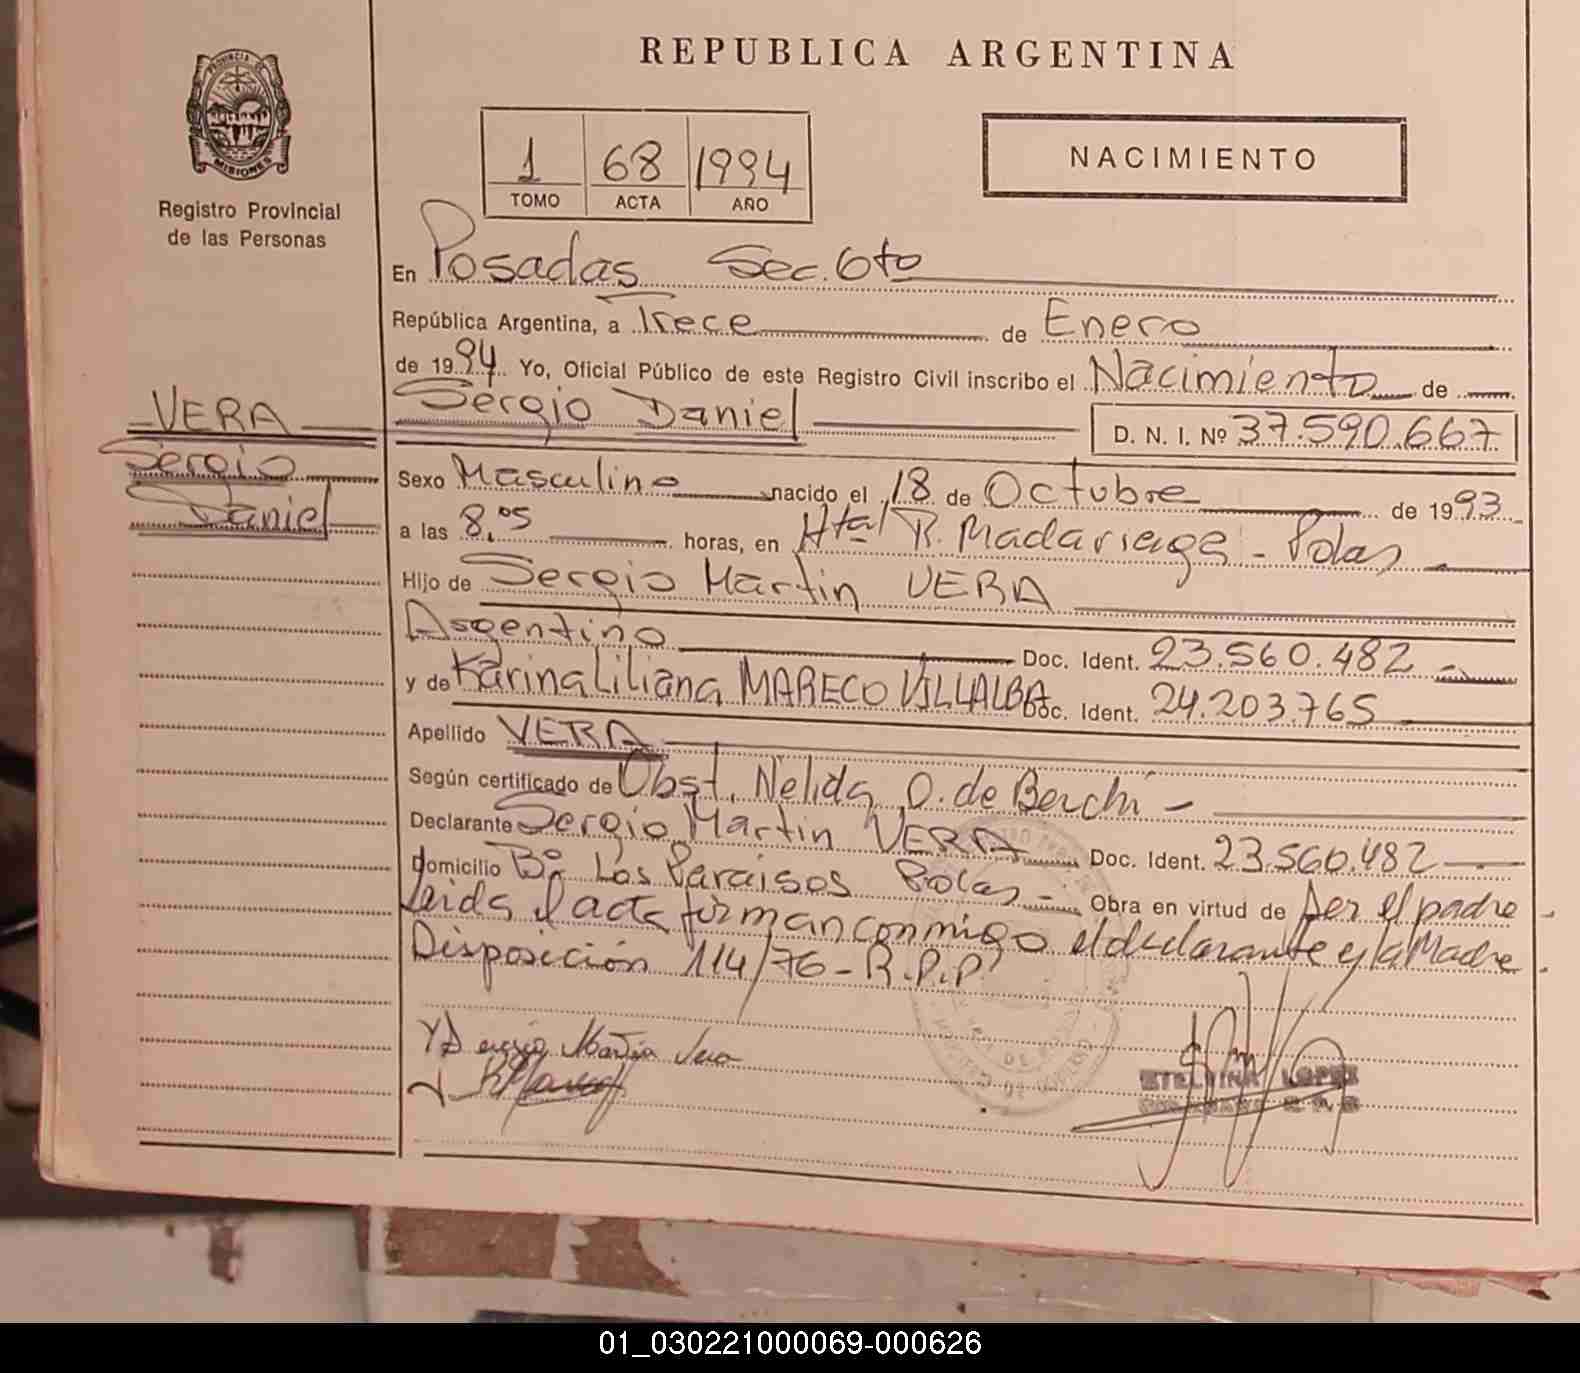 REPUBLICA ARGENTINA
PROVINCIA DE
MISIONES
Registro Provincial
de las Personas
1 68 1994
TOMO ACTA AÑO
NACIMIENTO
En Posadas Sec. 6to
República Argentina, a Trece de Enero
de 1994 Yo, Oficial Público de este Registro Civil inscribo el Nacimiento de
Sergio Daniel D. N. I. Nº 37.590.667
VERA
Sergio
Daniel
Sexo Masculino nacido el 18 de Octubre de 1993
a las 8,05 horas, en Htal R. Madariaga - Pdas
Hijo de Sergio Martin VERA
Argentino Doc. Ident. 23.560.482
y de Karina Liliana MARECO VILLALBA Doc. Ident. 24.203.765
Apellido VERA
Según certificado de Obst. Nelida O. de Berchi -
Declarante Sergio Martin VERA Doc. Ident. 23.560.482
Domicilio Bº Los Paraisos Pdas - Obra en virtud de ser el padre
Leida el acta firman conmigo el declarante y la Madre
Disposición 114/76 - R.P.P.
Sergio Martin Vera
ETELVINA LOPEZ
01_030221000069-000626